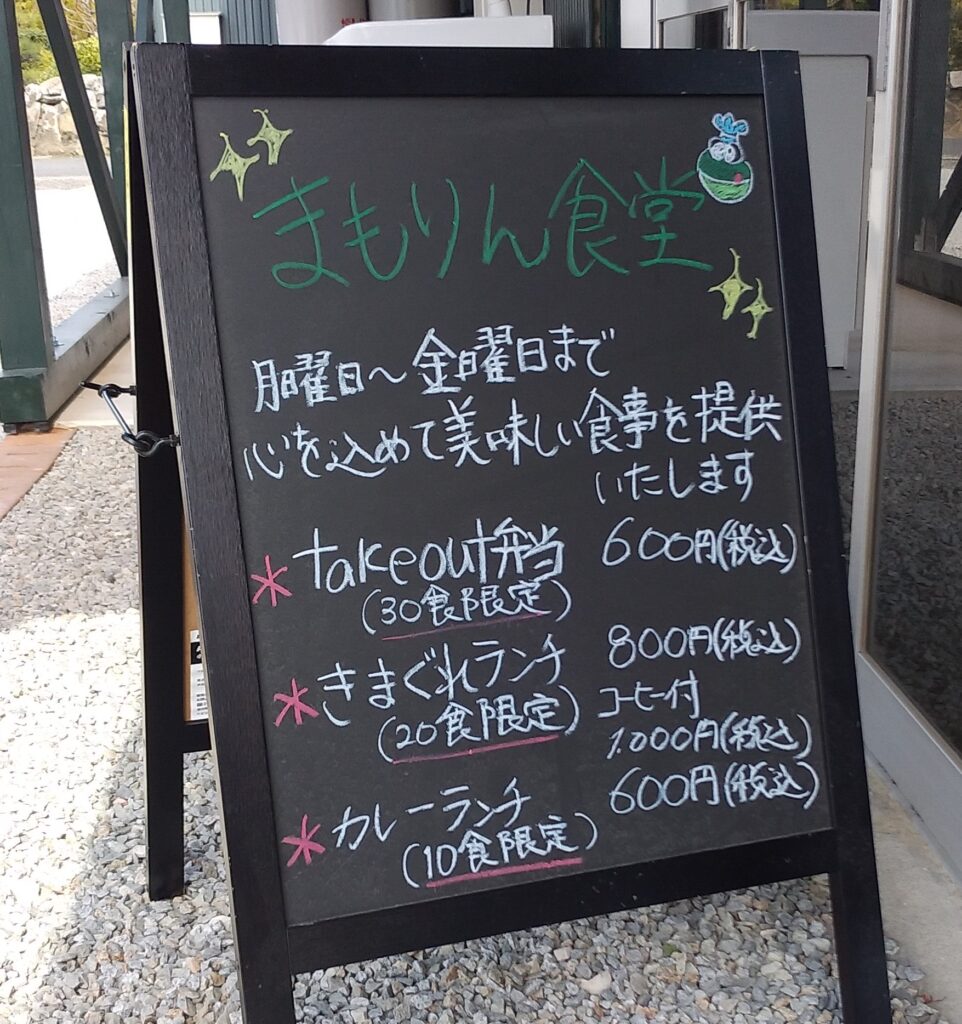 まもりん食堂
月曜日～金曜日まで
心を込めて美味しい食事を提供
いたします
*takeout弁当 600円(税込)
(30食限定)
*きまぐれランチ 800円(税込)
(20食限定) コーヒー付
1,000円(税込)
*カレーランチ 600円(税込)
(10食限定)